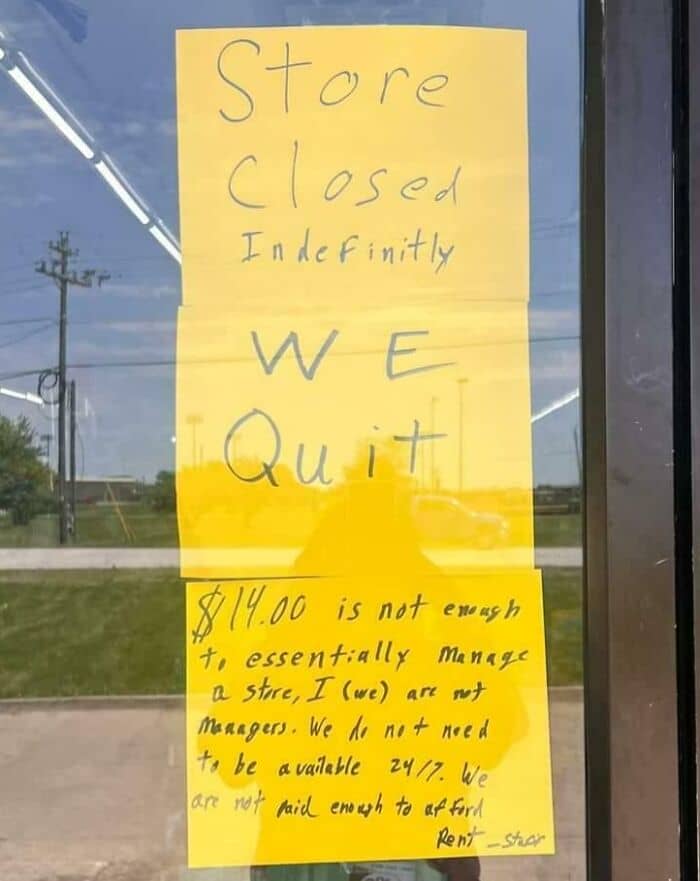 Store
Closed
Indefinitly
WE
Quit
$14.00 is not enough
to essentially manage
a store, I (we) are not
managers. We do not need
to be available 24/7. We
are not paid enough to afford
Rent